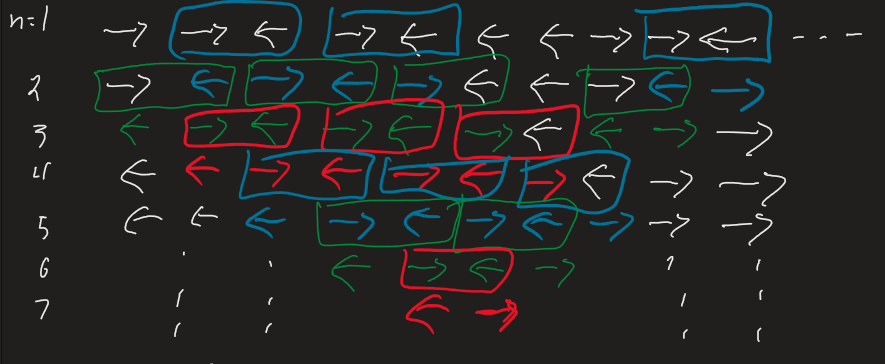 n=1 → → ← → ← ← ← → → ← - - -
2 → ← → ← → ← ← → ← →
3 ← → ← → ← → ← ← → →
4 ← ← → ← → ← → ← → →
5 ← ← ← → ← → ← → → →
6 ← → ← →
7 ← →